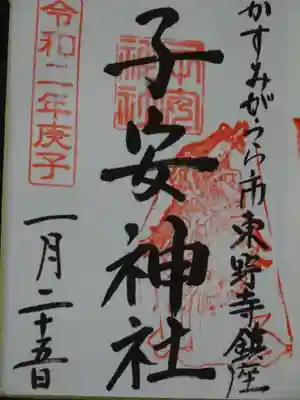 かすみがうら市東野寺鎮座
子安神社
子安神社
令和二年庚子
一月二十五日